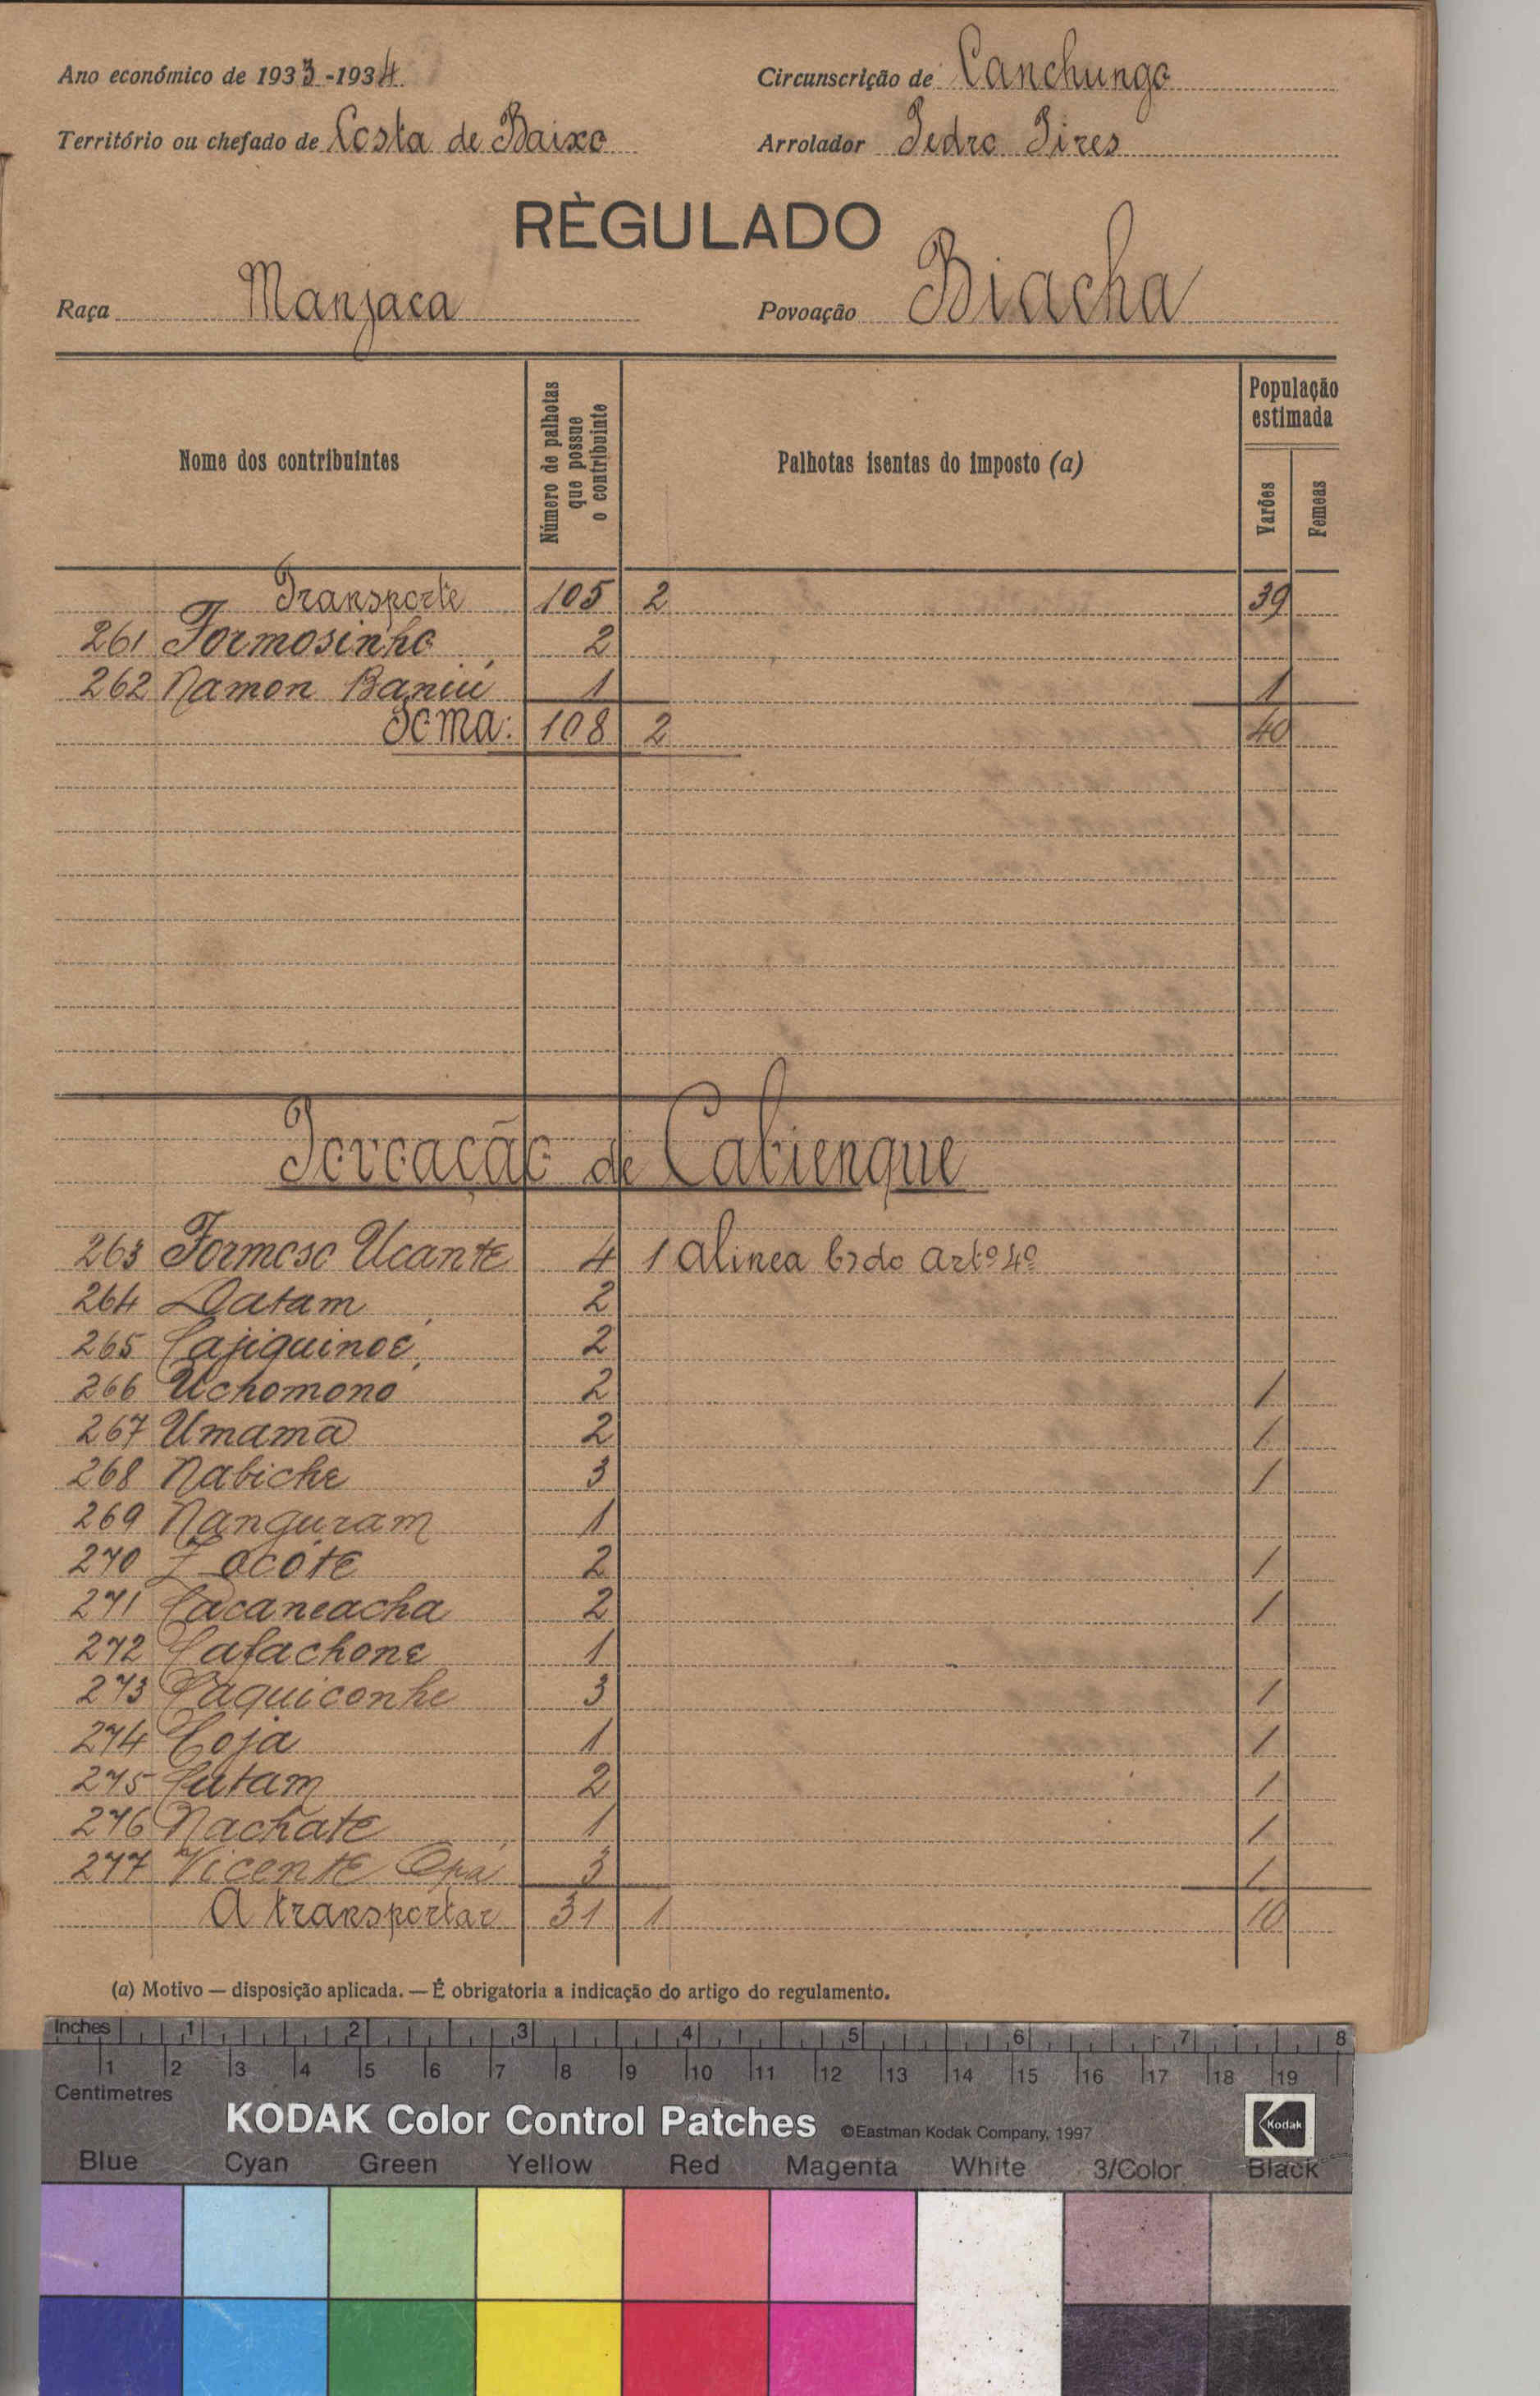 Ano económico de 1933-1934 Circunscrição de Canchungo
Território ou chefado de Costa de Baixo Arrolador Pedro Pires
RÈGULADO
Raça Manjaca Povoação Biacha
Nome dos contribuintes
Número de palhotas
que possue
o contribuinte
Palhotas isentas do imposto (a)
População
estimada
Varões
Femeas
Transporte 105 2 39
261 Formosinho 2
262 Namon Baniú 1 1
Soma: 108 2 40
Povoação de Cabienque
263 Formoso Ucante 4 1 Alinea b) do artº 4º
264 Datam 2
265 Cajiquinoé 2
266 Uchomonó 2 1
267 Umama 2 1
268 Nabiche 3 1
269 Nanguram 1
270 Zocóte 2 1
271 Cacaneacha 2 1
272 Cafachone 1
273 Caquiconhe 3 1
274 Coja 1 1
275 Cutam 2 1
276 Nachate 1 1
277 Vicente Opá 3 1
A transportar 31 1 10
(a) Motivo — disposição aplicada. — É obrigatoria a indicação do artigo do regulamento.
Inches 1 2 3 4 5 6 7 8
1 2 3 4 5 6 7 8 9 10 11 12 13 14 15 16 17 18 19
Centimetres
KODAK Color Control Patches ©Eastman Kodak Company, 1997 Kodak
Blue Cyan Green Yellow Red Magenta White 3/Color Black